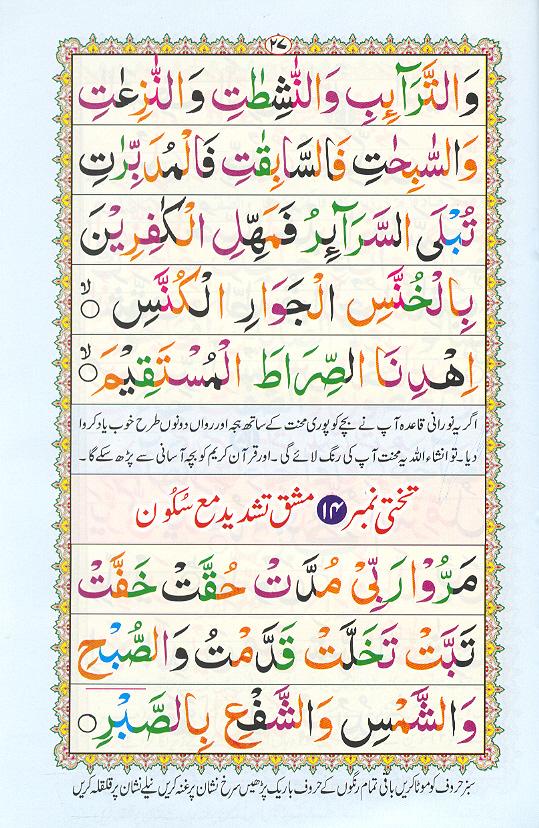 ۲۷
وَالتَّرَآئِبِ وَالنّٰشِطٰتِ وَالنّٰزِعٰتِ
وَالسّٰبِحٰتِ فَالسّٰبِقٰتِ فَالْمُدَبِّرٰتِ
تُبْلَى السَّرَآئِرُ فَمَهِّلِ الْكٰفِرِيْنَ
بِالْخُنَّسِ الْجَوَارِ الْكُنَّسِ ○ لا
اِهْدِنَا الصِّرَاطَ الْمُسْتَقِيْمَ ○ لا
اگر یہ نورانی قاعدہ آپ نے بچے کو پوری محنت کے ساتھ ہجہ اور رواں دونوں طرح خوب یاد کروا
دیا۔ تو انشاء اللہ یہ محنت آپ کی رنگ لائے گی۔ اور قرآن کریم کو بچہ آسانی سے پڑھ سکے گا۔
تختی نمبر ۱۴ مشق تشدید مع سکون
مَرُّوْا رَبِّيْ مُدَّتْ حُقَّتْ خَفَّتْ
تَبَّتْ تَخَلَّتْ قَدَّمْتُ وَالصُّبْحِ
وَالشَّمْسِ وَالشَّفْعِ بِالصَّبْرِ ○
سبز حروف کو موٹا کریں باقی تمام رنگوں کے حروف باریک پڑھیں سرخ نشان پر غنہ کریں نیلے نشان پر قلقلہ کریں